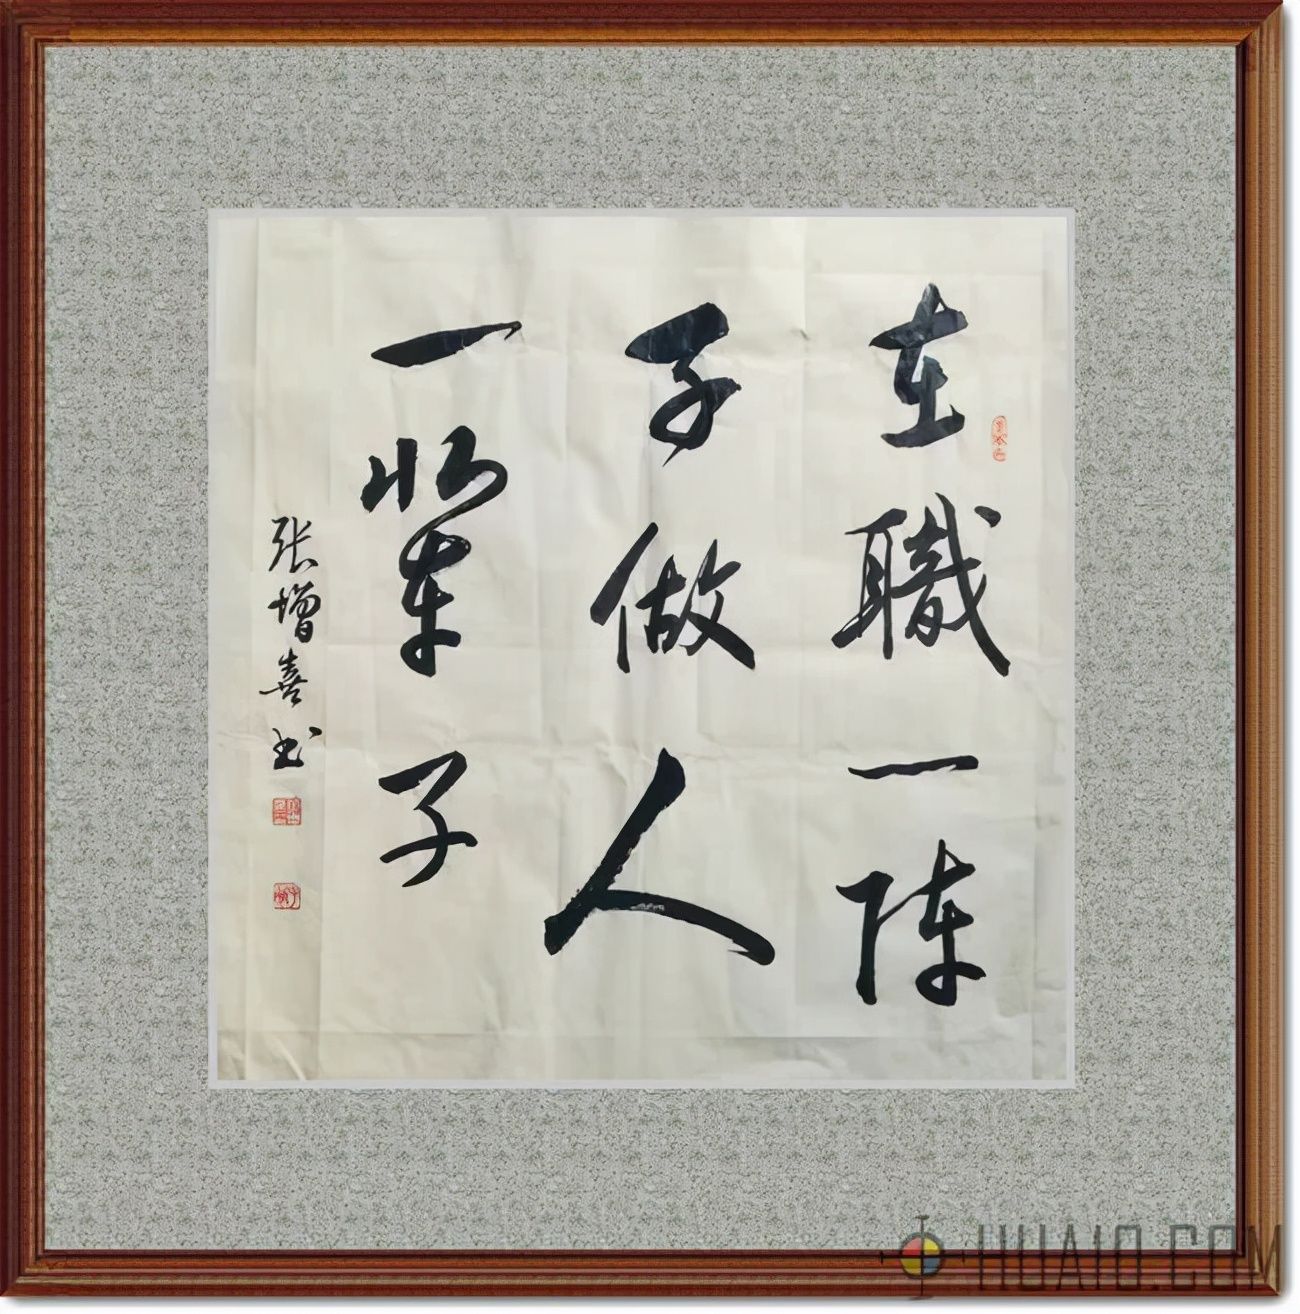 在職一陣
子做人
一輩子
张增喜书
HUAIO.COM